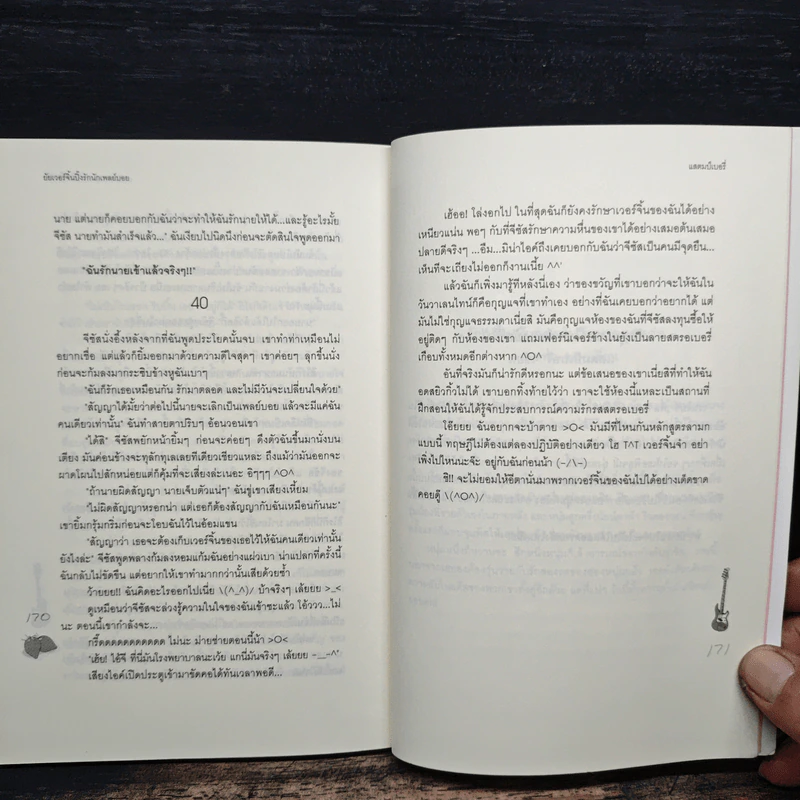 ยัยเวอร์จิ้นปิ๊งรักนักเพลย์บอย
นาย แต่นายก็คอยบอกกับฉันว่าจะทำให้ฉันรักนายให้ได้...และรู้อะไรมั้ย
จีซัส นายทำมันสำเร็จแล้ว..." ฉันเงียบไปนิดนึงก่อนจะตัดสินใจพูดออกมา
"ฉันรักนายเข้าแล้วจริงๆ!!"
40
จีซัสนั่งอึ้งหลังจากที่ฉันพูดประโยคนั้นจบ เขาทำท่าเหมือนไม่
อยากเชื่อ แต่แล้วก็ยิ้มออกมาด้วยความดีใจสุดๆ เขาค่อยๆ ลุกขึ้นนั่ง
ก่อนจะก้มลงมากระซิบข้างหูฉันเบาๆ
"ฉันก็รักเธอเหมือนกัน รักมาตลอด และไม่มีวันจะเปลี่ยนใจด้วย"
"สัญญาได้มั้ยว่าต่อไปนี้นายจะเลิกเป็นเพลย์บอย แล้วจะมีแค่ฉัน
คนเดียวเท่านั้น" ฉันทำสายตาปริบๆ อ้อนวอนเขา
"ได้สิ" จีซัสพยักหน้ายิ้มๆ ก่อนจะค่อยๆ ดึงตัวฉันขึ้นมานั่งบน
เตียง มันค่อนข้างจะทุลักทุเลเลยทีเดียวเชียวแหละ ถึงแม้ว่ามันออกจะ
ผาดโผนไปสักหน่อยแต่ก็คุ้มที่จะเสี่ยงล่ะเนอะ อิๆๆๆ ^O^
"ถ้านายผิดสัญญา นายเจ็บตัวแน่ๆ" ฉันขู่เขาเสียงเหี้ยม
"ไม่ผิดสัญญาหรอกน่า แต่เธอก็ต้องสัญญากับฉันเหมือนกันนะ"
เขายิ้มกรุ้มกริ่มก่อนจะโอบฉันไว้ในอ้อมแขน
"สัญญาว่า เธอจะต้องเก็บเวอร์จิ้นของเธอไว้ให้ฉันคนเดียวเท่านั้น
ยังไงล่ะ" จีซัสพูดพลางก้มลงหอมแก้มฉันอย่างแผ่วเบา น่าแปลกที่ครั้งนี้
ฉันกลับไม่ขัดขืน แต่อยากให้เขาทำมากกว่านั้นเสียด้วยซ้ำ
ว้ายยย!! ฉันคิดอะไรออกไปเนี่ย \(^_^)/ บ้าจริงๆ เล้ยยย >_<
ดูเหมือนว่าจีซัสจะล่วงรู้ความในใจของฉันเข้าซะแล้ว โอ้ววว...ไม่
นะ ตอนนี้เขากำลังจะ...
กรี๊ดดดดดดดดดดด ไม่นะ ม่ายช่ายตอนนี้น้า >O<
"เฮ้ย! ไอ้จี ที่นี่มันโรงพยาบาลนะเว้ย แกนี่มันจริงๆ เล้ยยย -__-^"
เสียงไอค์เปิดประตูเข้ามาขัดคอได้ทันเวลาพอดี...
170
แสตมป์เบอรี่
เฮ้ออ! โล่งอกไป ในที่สุดฉันก็ยังคงรักษาเวอร์จิ้นของฉันได้อย่าง
เหนียวแน่น พอๆ กับที่จีซัสรักษาความหื่นของเขาได้อย่างเสมอต้นเสมอ
ปลายดีจริงๆ ...อืม...มิน่าไอค์ถึงเคยบอกกับฉันว่าจีซัสเป็นคนมีจุดยืน...
เห็นทีจะเถียงไม่ออกก็งานเนี้ย ^^'
แล้วฉันก็เพิ่งมารู้ทีหลังนี้เอง ว่าของขวัญที่เขาบอกว่าจะให้ฉันใน
วันวาเลนไทน์ก็คือกุญแจที่เขาทำเอง อย่างที่ฉันเคยบอกว่าอยากได้ แต่
มันไม่ใช่กุญแจธรรมดาเนี่ยสิ มันคือกุญแจห้องของฉันที่จีซัสลงทุนซื้อให้
อยู่ติดๆ กับห้องของเขา แถมเฟอร์นิเจอร์ข้างในยังเป็นลายสตรอเบอรี่
เกือบทั้งหมดอีกต่างหาก ^O^
อันที่จริงมันก็น่ารักดีหรอกนะ แต่ข้อเสนอของเขาเนี่ยสิที่ทำให้ฉัน
อดสยิวกิ้วไม่ได้ เขาบอกทิ้งท้ายไว้ว่า เขาจะใช้ห้องนี้แหละเป็นสถานที่
ฝึกสอนให้ฉันได้รู้จักประสบการณ์ความรักรสสตรอเบอรี่
โอ๊ยยย ฉันอยากจะบ้าตาย >O< มันมีที่ไหนกันหลักสูตรลามก
แบบนี้ ทฤษฎีไม่ต้องแต่ลองปฏิบัติอย่างเดียว โฮ T^T เวอร์จิ้นจ๋า อย่า
เพิ่งไปไหนนะจ๊ะ อยู่กับฉันก่อนน้า (-/\-)
ชิ!! จะไม่ยอมให้อีตานั่นมาพรากเวอร์จิ้นของฉันไปได้อย่างเด็ดขาด
คอยดู๊ \(^O^)/
171